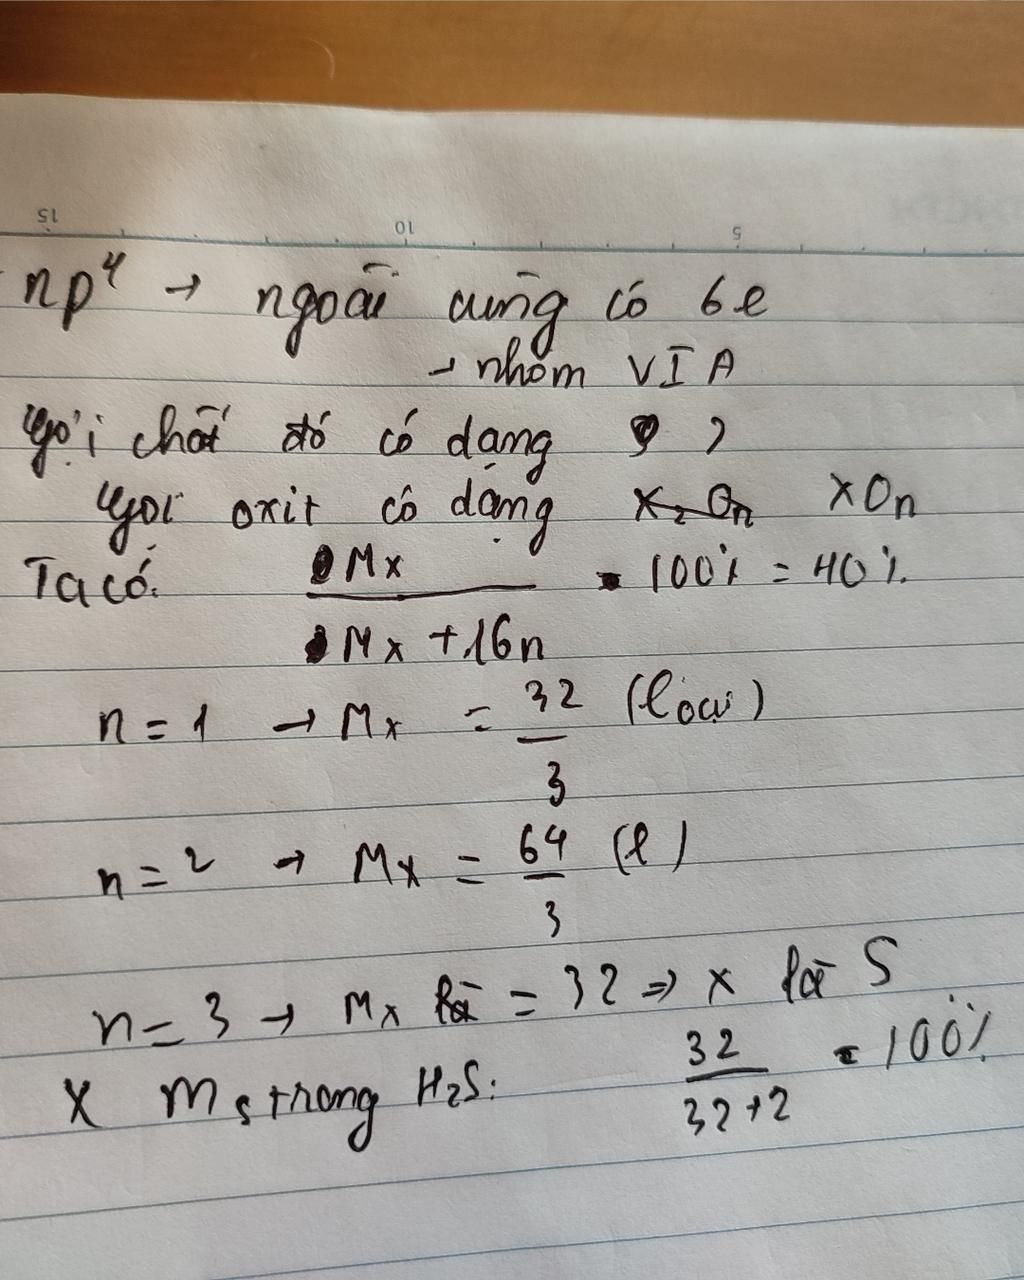 15 10 5
np⁴ → ngoài cùng có 6e
→ nhóm VIA
Gọi chất đó có dạng ?
Gọi oxit có dạng X₂On XOn
Ta có: Mx / Mx + 16n . 100% = 40%
n = 1 → Mx = 32/3 (loại)
n = 2 → Mx = 64/3 (l)
n = 3 → Mx là = 32 => X là S
X ms trong H₂S: 32/32+2 . 100%